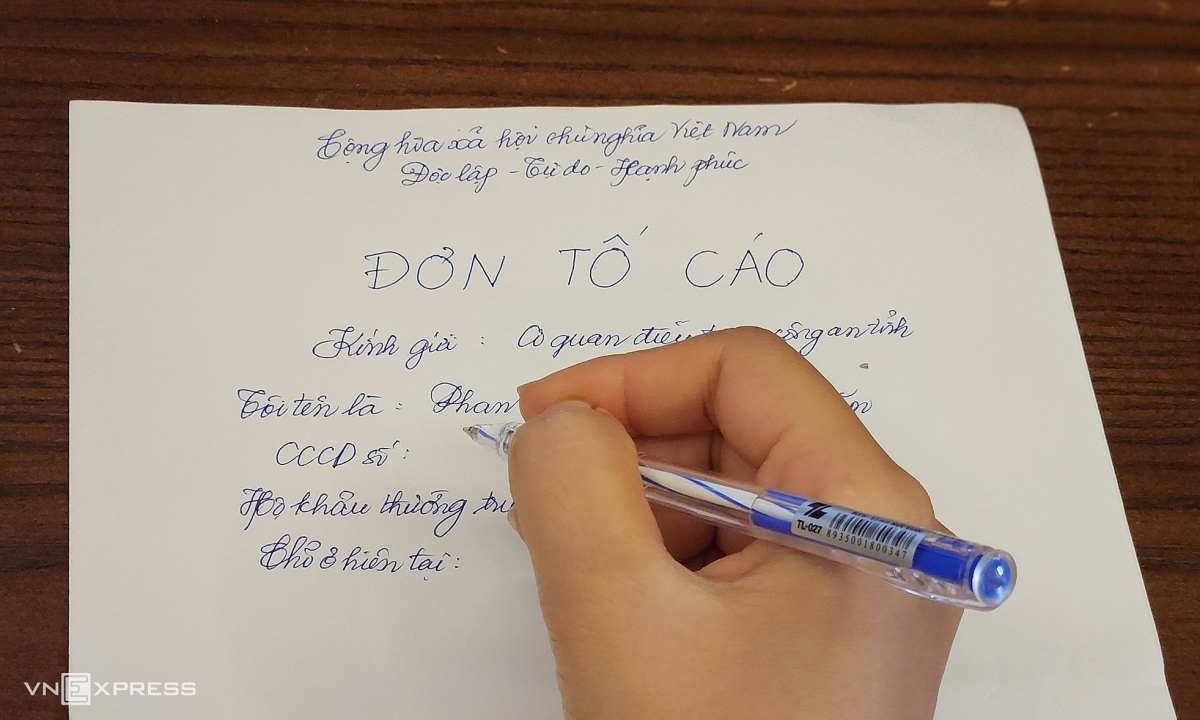 Cộng hòa xã hội chủ nghĩa Việt Nam
Độc lập - Tự do - Hạnh phúc
ĐƠN TỐ CÁO
Kính gửi : Cơ quan điều công an tỉnh
Tôi tên là : Phan
CCCD số :
Hộ khẩu thường
Chỗ ở hiện tại :
TL-027
8935001800347
VNEXPRESS